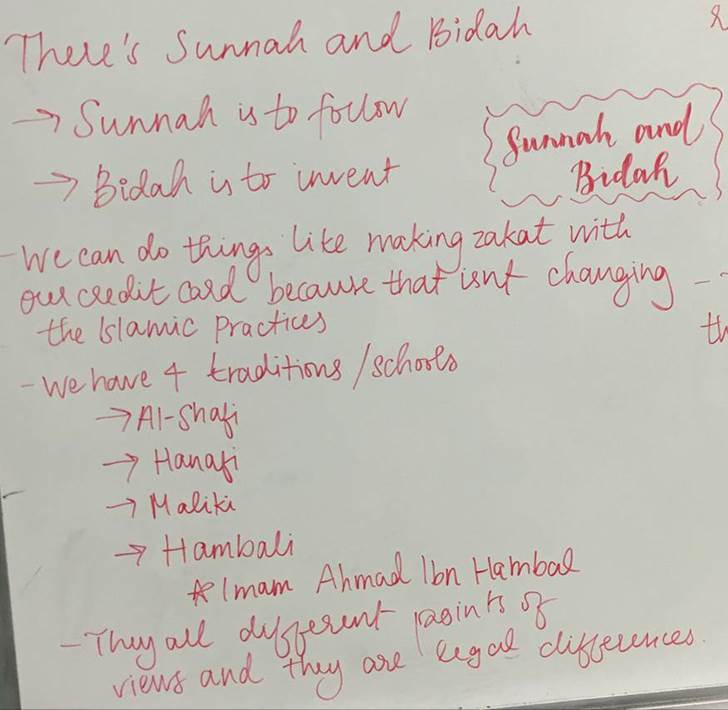 There's Sunnah and Bidah
→ Sunnah is to follow
→ Bidah is to invent
Sunnah and
Bidah
- We can do things like making zakat with
our credit card because that isnt changing
the Islamic practices
- We have 4 traditions/schools
→ Al-Shafi
→ Hanafi
→ Maliki
→ Hambali
* Imam Ahmad Ibn Hambal
- They all different points of
views and they are legal differences.